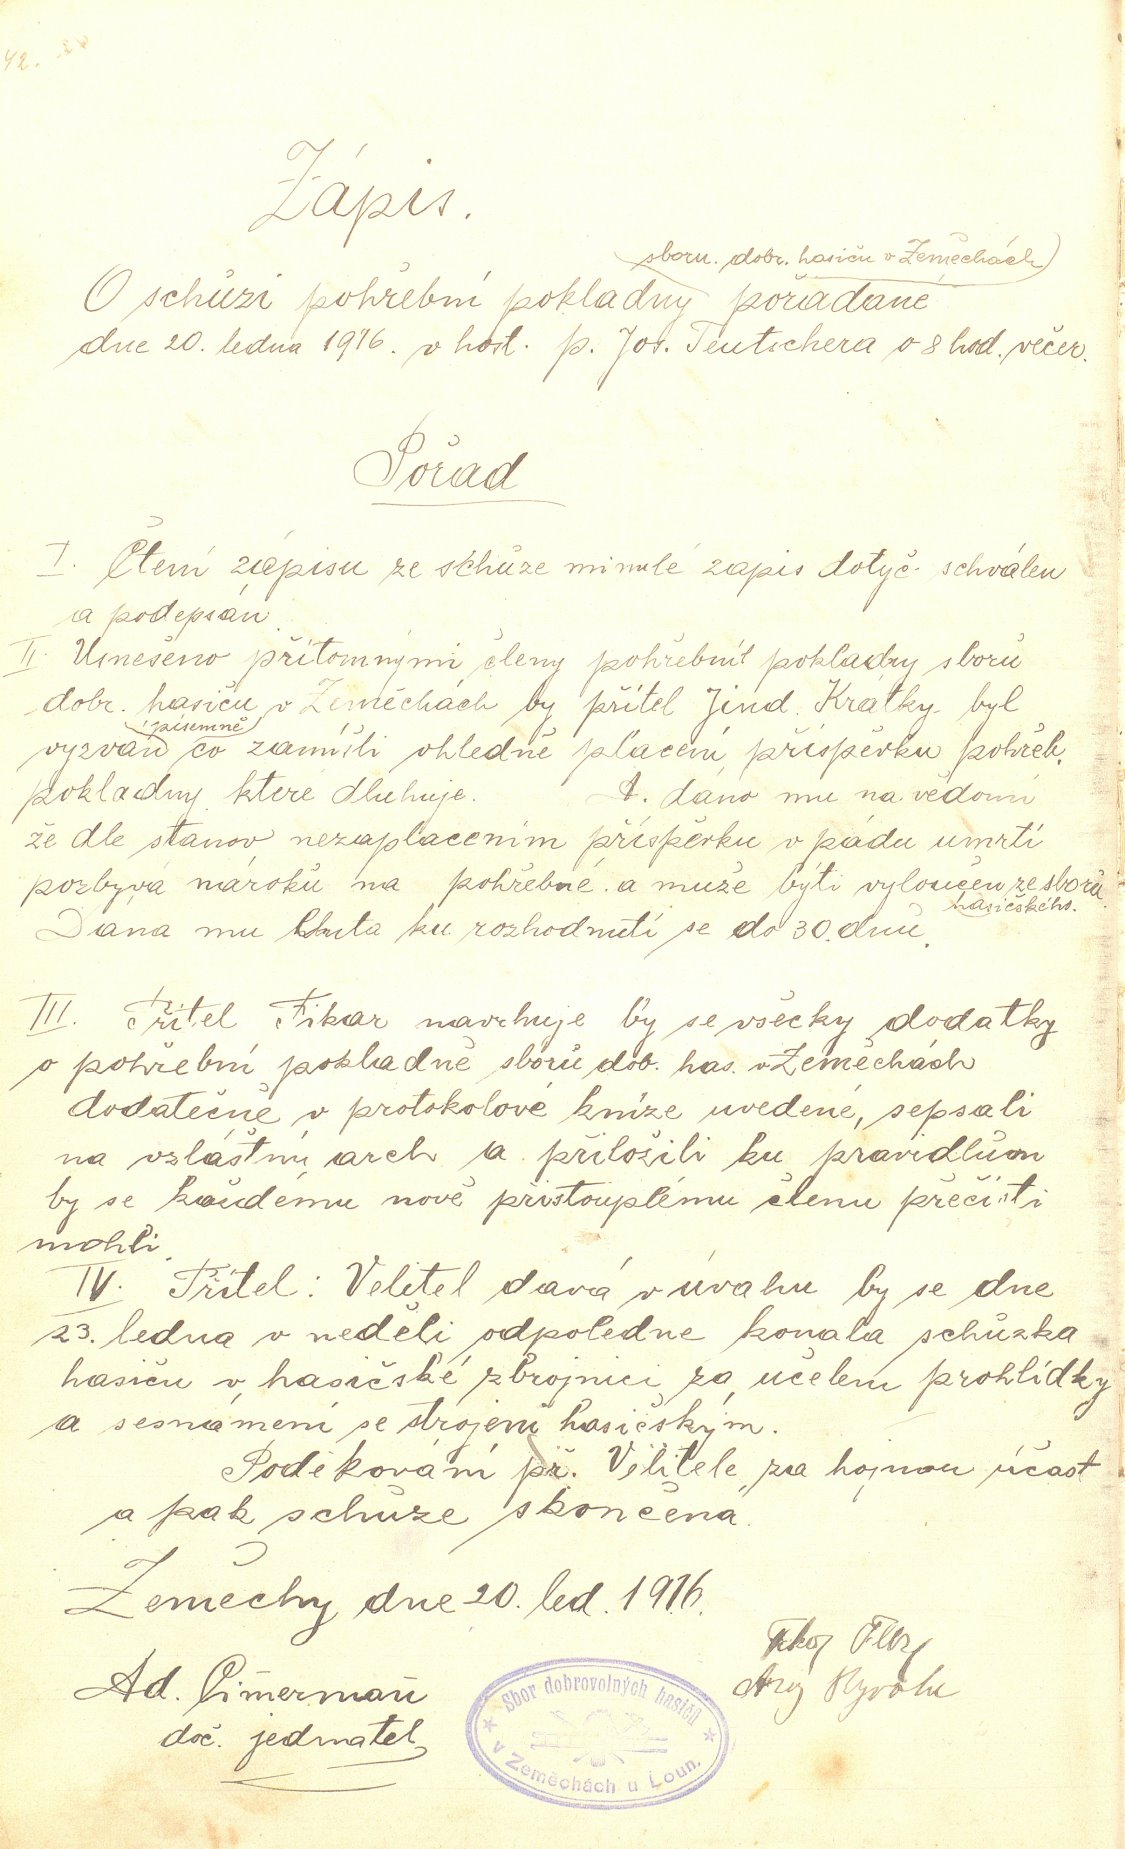 42.
Zápis.
sboru. dobr. hasičů v Zeměchách)
O schůzi pohřební pokladny pořádané
dne 20. ledna 1916. v host. p. Jos. Teutschera o 8 hod. večer.
Pořad
I. Čtení zápisu ze schůze minulé zapis dotyč. schválen
a podepsán.
II. Usnešeno přítomnými členy pohřební pokladny sborů
dobr. hasičů v Zeměchách by přítel Jind. Krátky byl
(písemně)
vyzván co zamíšli ohledně placení příspěvku pohřeb.
pokladny které dluhuje. A. dáno mu na vědomí
že dle stanov nezaplacením příspěvku v pádu umrtí
pozbývá nároků na pohřebné a muže býti vyloučen ze sborů
hasičského.
Dána mu lhuta ku rozhodnutí se do 30. dnů.
III. Přítel Fikar navrhuje by se všecky dodatky
o pohřební pokladně sborů dob. has. v Zeměchách
dodatečně v protokolové knize uvedené, sepsali
na vzláštní arch a přiložili ku pravidlům
by se každému nově přistouplému členu přečísti
mohli.
IV. Přítel: Velitel davá v úvahu by se dne
23. ledna v neděli odpoledne konala schůzka
hasičů v hasičské zbrojnici za učelem prohlídky
a sesnámení se strojem hasičským.
Poděkování př. Velitele za hojnou účast
a pak schůze skončena.
Zeměchy dne 20. led. 1916.
Ad. Cimerman
doč. jednatel
Sbor dobrovolných hasičů
v Zeměchách u Loun.